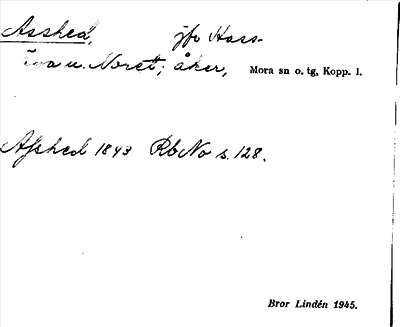 Asshed, jfr Hass-
u. Noret; åker, Mora sn o. tg, Kopp. l.
Afshed 1843 RbNo s. 128.
Bror Lindén 1945.